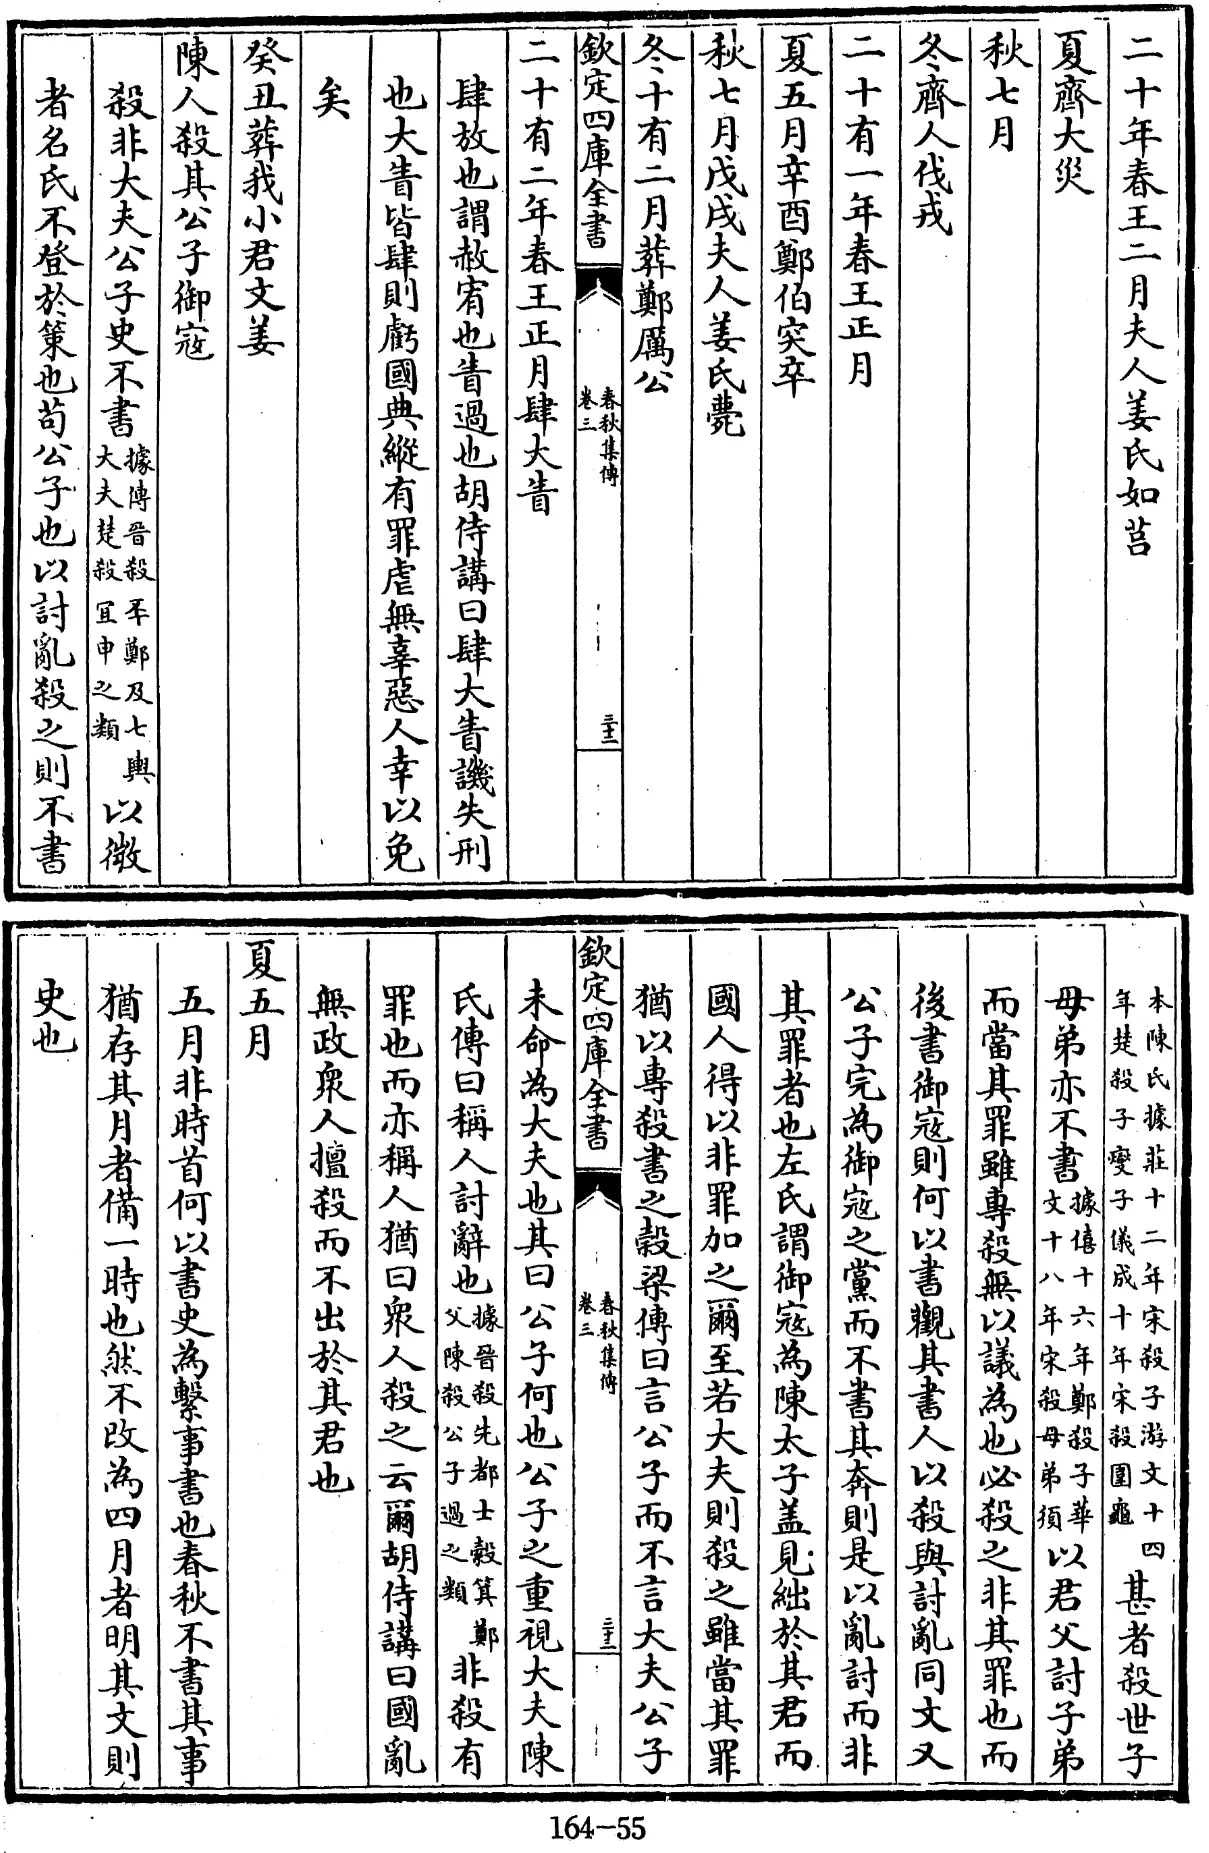 二十年春王二月夫人姜氏如莒
夏齊大災
秋七月
冬齊人伐戎
二十有一年春王正月
夏五月辛酉鄭伯突卒
秋七月戊戌夫人姜氏薨
冬十有二月葬鄭厲公
欽定四庫全書
春秋集傳
卷三
三十二
二十有二年春王正月肆大眚
肆放也謂赦宥也眚過也胡侍講曰肆大眚譏失刑
也大眚皆肆則虧國典縱有罪虐無辜惡人幸以免
矣
癸丑葬我小君文姜
陳人殺其公子御寇
殺非大夫公子史不書據傳晉殺㔻鄭及七輿大夫楚殺宜申之類以徵
者名氏不登於策也苟公子也以討亂殺之則不書
本陳氏據莊十二年宋殺子游文十四年楚殺子燮子儀成十年宋殺圍龜甚者殺世子
母弟亦不書據僖十六年鄭殺子華文十八年宋殺母弟須以君父討子弟
而當其罪雖專殺無以議為也必殺之非其罪也而
後書御寇則何以書觀其書人以殺與討亂同文又
公子完為御寇之黨而不書其奔則是以亂討而非
其罪者也左氏謂御寇為陳太子蓋見絀於其君而
國人得以非罪加之爾至若大夫則殺之雖當其罪
猶以專殺書之榖梁傳曰言公子而不言大夫公子
欽定四庫全書
春秋集傳
卷三
三十二
未命為大夫也其曰公子何也公子之重視大夫陳
氏傳曰稱人討辭也據晉殺先都士榖箕鄭父陳殺公子過之類非殺有
罪也而亦稱人猶曰衆人殺之云爾胡侍講曰國亂
無政衆人擅殺而不出於其君也
夏五月
五月非時首何以書史為繫事書也春秋不書其事
猶存其月者備一時也然不改為四月者明其文則
史也
164-55